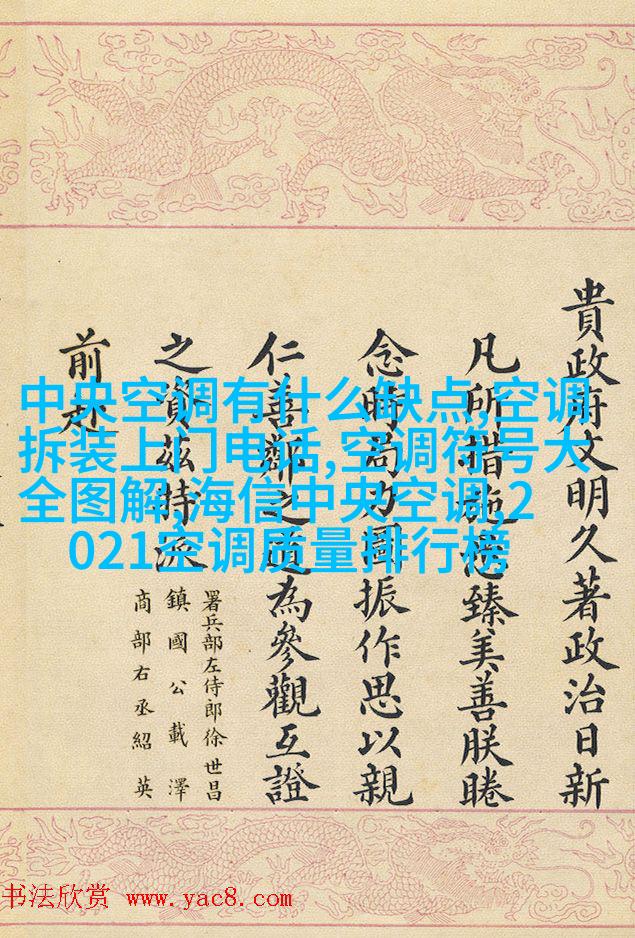 貴政府文明久著政治日新
凡所措施悉臻美善朕睠
念時局乃圖振作思以親
仁善鄰之道為參觀互證
之資茲特派
署兵部左侍郎徐世昌
鎮國公載澤
商部右丞紹英
前赴
中央空调有什么缺点,空调
拆装上门电话,空调符号大
全图解,海信中央空调,2
021空调质量排行榜
书法欣赏 www.yac8.com